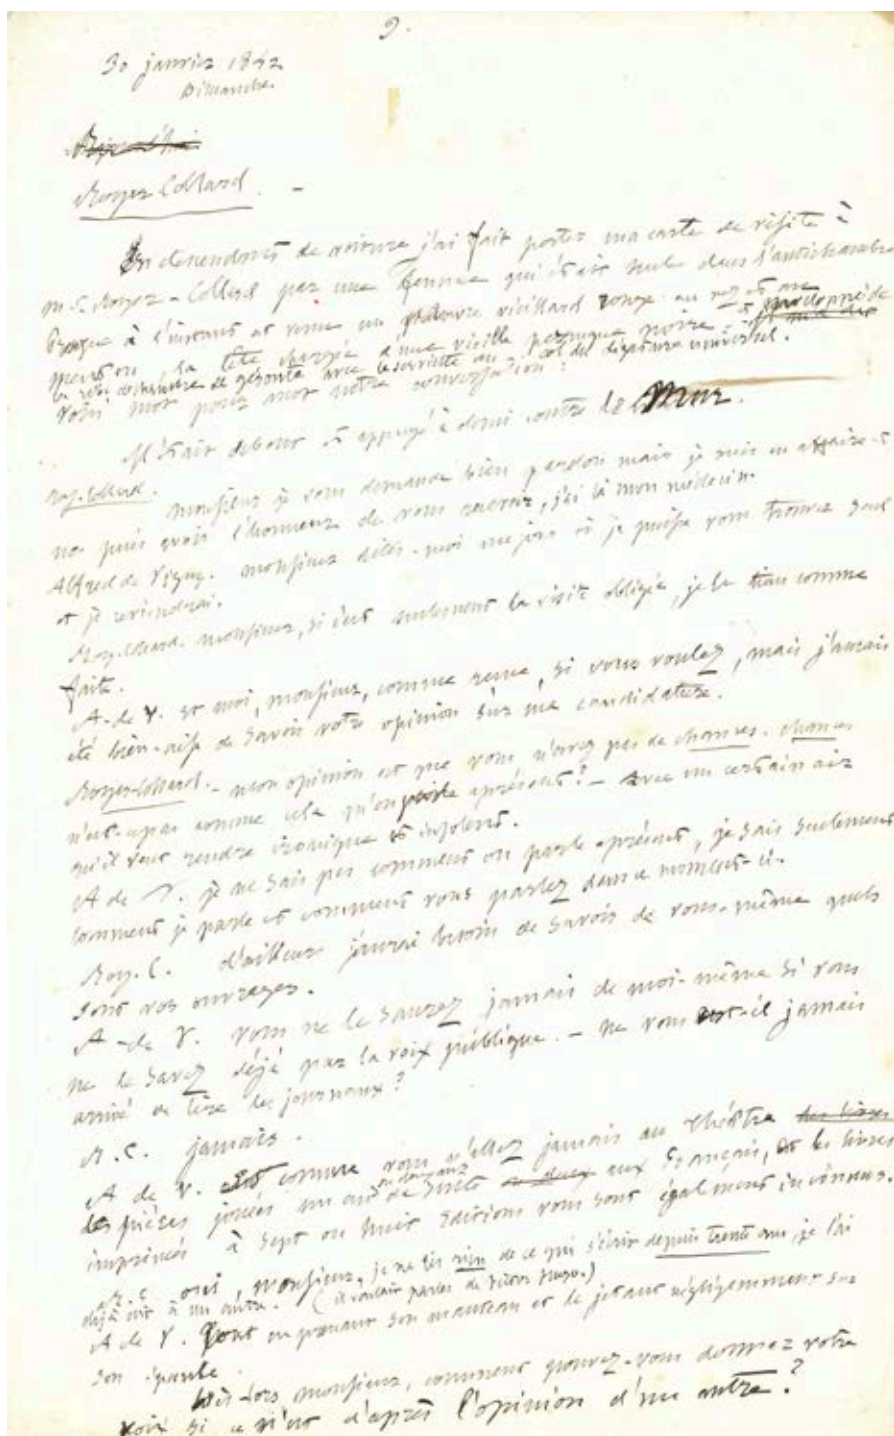 9.
30 janvier 1842
Dimanche.
Royer-Collard. -
En descendant de voiture j'ai fait porter ma carte de visite à
M. Royer-Collard par une femme qui était seule dans l'antichambre
Presque à l'instant est venu un pauvre vieillard rouge au nez et au
menton, la tête chargée d'une vieille perruque noire et enveloppé de
la robe de chambre de Géronte avec la serviette au col du légataire universel.
Voici mot pour mot notre conversation :
Il était debout et appuyé à demi contre le Mur.
Roy. Collard. Monsieur je vous demande bien pardon mais je suis en affaire et
ne puis avoir l'honneur de vous recevoir, j'ai là mon médecin.
Alfred de Vigny. Monsieur dites-moi un jour où je puisse vous trouver seul
et je reviendrai.
Roy. Collard. Monsieur, si c'est seulement la visite obligée, je la tiens comme
faite.
A. de V. Et moi, monsieur, comme reçue, si vous voulez, mais j'aurais
été bien-aise de savoir votre opinion sur ma candidature.
Royer-Collard. - Mon opinion est que vous n'avez pas de chances. chances
n'est-ce pas comme cela qu'on parle àprésent ? - Avec un certain air
qu'il veut rendre ironique et insolent.
A de V. je ne sais pas comment on parle àprésent, je sais seulement
comment je parle et comment vous parlez dans ce moment-ci.
Roy. C. D'ailleurs j'aurai besoin de savoir de vous-même quels
sont vos ouvrages.
A. de V. Vous ne le saurez jamais de moi-même si vous
ne le savez déjà par la voix publique. - Ne vous est-il jamais
arrivé de lire les journaux ?
R. C. jamais.
A de V. Et comme vous n'allez jamais au théâtre des livres
les pièces jouées un an ou deux ans de suite aux Français, et les livres
imprimés à sept ou huit éditions vous sont également inconnus.
R. C. oui, Monsieur, je ne lis rien de ce qui s'écrit depuis trente ans, je l'ai
déjà dit à un autre. (il voulait parler de Victor Hugo.)
A de V. Tout en prenant son manteau et le jetant négligemment sur
son épaule.
Dès-lors monsieur, comment pouvez-vous donner votre
voix si ce n'est d'après l'opinion d'un autre ?